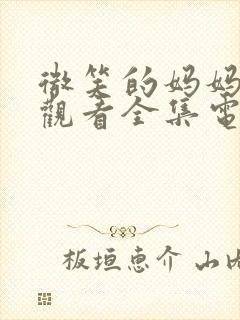 微笑的妈妈
觀看全集電
板垣恵介 山内